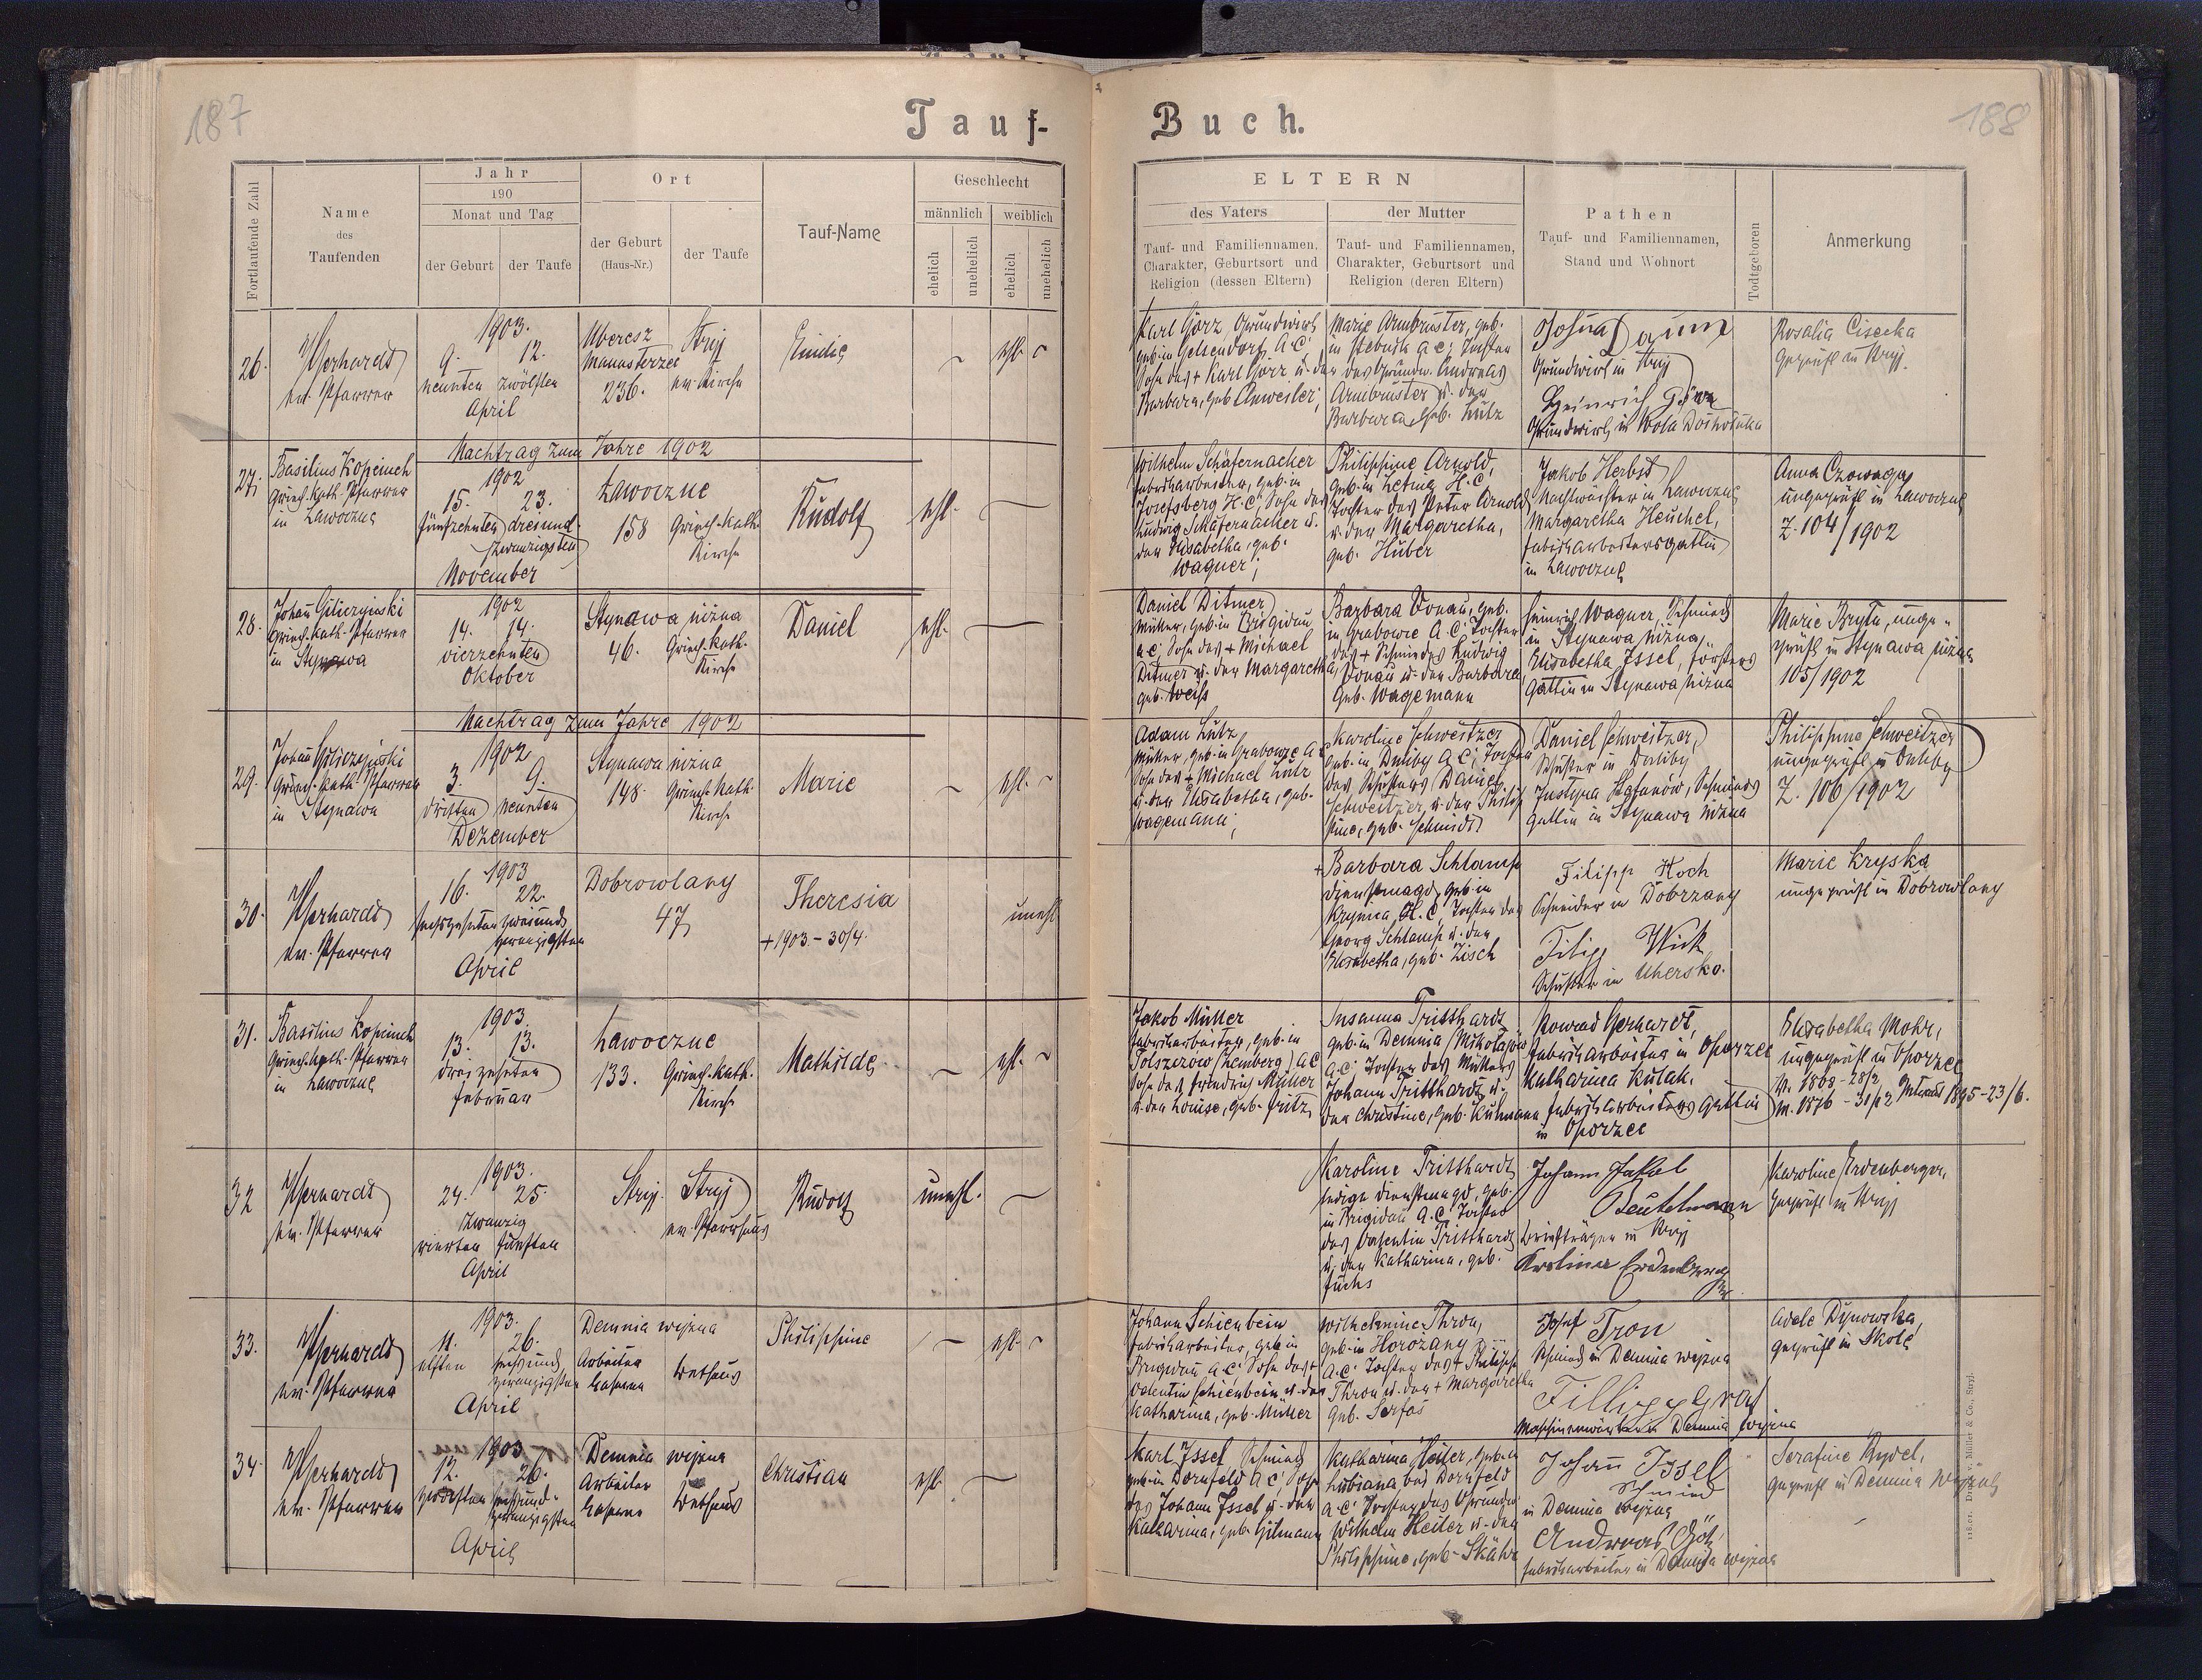 187
188
Tauf-Buch.
Fortlaufende Zahl
Name
des
Taufenden
Jahr
190
Monat und Tag
der Geburt
der Taufe
Ort
der Geburt
(Haus-Nr.)
der Taufe
Tauf-Name
Geschlecht
männlich
weiblich
ehelich
unehelich
ehelich
unehelich
ELTERN
des Vaters
Tauf- und Familiennamen,
Charakter, Geburtsort und
Religion (dessen Eltern)
der Mutter
Tauf- und Familiennamen,
Charakter, Geburtsort und
Religion (deren Eltern)
Pathen
Tauf- und Familiennamen,
Stand und Wohnort
Todtgeboren
Anmerkung
26.
ev. Pfarrer
1903.
9. 12.
neunten zwölften
April
236.
Stryj
ev. Kirche
Emilie
ehl.
Karl Görz, Grundwirth
geb. in Gelsendorf, A.C.
Sohn des + Karl Görz u. der
Barbara, geb. Anweiler;
Marie Armbruster, geb.
A.C; Tochter
des Grundw. Andreas
Armbruster u. der
Barbara, geb. Lutz
Grundwirth in Stryj
Heinrich Görz
Grundwirth in Wola Dołhołucka
Rosalia Cisecka
geprüft in Stryj.
Nachtrag zum Jahre 1902
27.
Griech. kath. Pfarrer
in Lawoczne
1902
15. 23.
fünfzehnten dreiund-
zwanzigsten
November
Lawoczne
158
Griech. kath.
Kirche
Rudolf
ehl.
Wilhelm Schäfernacker
Fabriksarbeiter, geb. in
Josefsberg H.C; Sohn des
Ludwig Schäfernacker u.
der Elisabetha, geb.
Wagner;
Philippine Arnold,
H.C
Tochter des Peter Arnold
u. der Margaretha,
geb. Huber
Jakob Herbst
Nachtwächter in Lawoczne
Margaretha Heuchel,
Fabriksarbeitersgattin
in Lawoczne
ungeprüft in Lawoczne
Z. 104/1902
28.
Griech. kath. Pfarrer
in Stynawa
1902
14. 14.
vierzehnten
Oktober
Stynawa niżna
46.
Griech. kath.
Kirche
Daniel
ehl.
Daniel Ditmer
Müller, geb. in Brigidau
A.C; Sohn des + Michael
Ditmer u. der Margaretha,
geb. Weiß
Barbara Donau, geb.
in Grabowce A.C; Tochter
des + Schmiedes Ludwig
Donau u. der Barbara,
geb. Wagemann
Heinrich Wagner, Schmied
in Stynawa niżna,
Elisabetha Issel, Försters
Gattin in Stynawa niżna
Marie Bryła, unge-
prüft in Stynawa niżna
105/1902
Nachtrag zum Jahre 1902
29.
Griech. kath. Pfarrer
in Stynawa
1902
3. 9.
dritten neunten
Dezember
Stynawa niżna
148.
Griech. kath.
Kirche
Marie
ehl.
Adam Lutz
Müller, geb. in Grabowce A.C
Sohn des + Michael Lutz
u. der Elisabetha, geb.
Wagemann;
Karoline Schweitzer
geb. in Duliby A.C; Tochter
des Schusters Daniel
Schweitzer u. der Philip-
pine, geb. Schmidt
Daniel Schweitzer,
Schuster in Duliby
Justyna Stefanów, Schmieds
Gattin in Stynawa niżna
Philippine Schweitzer
ungeprüft in Duliby
Z. 106/1902
30.
ev. Pfarrer
1903
16. 22.
sechszehnten zweiund
zwanzigsten
April
Dobrowlany
47
Theresia
+1903.-30/4.
unehl
+ Barbara Schlamp
Dienstmagd, geb. in
Krynica, H.C, Tochter des
Georg Schlamp u. der
Elisabetha, geb. Zisch
Filipp Koch
Schneider in Dobrzany
Filipp Wick
Schuster in Uhersko.
Marie Kryska
ungeprüft in Dobrowlany
31.
Griech. kath. Pfarrer
in Lawoczne
1903.
13. 13.
dreizehnten
Februar
Lawoczne
133.
Griech. kath.
Kirche
Mathilde
ehl.
Jakob Müller
Fabriksarbeiter, geb. in
(Lemberg) A.C
Sohn des Friedrich Müller
u. der Louise, geb. Fritz
Susanna Tritthardt
geb. in Demnia (Mikołajów
A.C; Tochter des Müllers
Johann Tritthardt u.
der Christine, geb. Kuhmann
Konrad Gerhardt,
Fabriksarbeiter in Oporzec
Katharina Kulak,
Fabriksarbeiters Gattin
in Oporzec
Elisabetha Mohr,
ungeprüft in Oporzec
1895-23/6.
32
ev. Pfarrer
1903.
24. 25.
zwanzig
vierten fünften
April
Stryj
Stryj
ev. Pfarrhaus
Rudolf
unehl.
Karoline Tritthardt
ledige Dienstmagd, geb.
in Brigidau A.C; Tochter
des Valentin Tritthardt
u. der Katharina, geb.
Fuchs
Beutelmann
Briefträger in Stryj
Karoline Erdenberger,
geprüft in Stryj
33.
ev. Pfarrer
1903.
11. 26.
elften sechsund
zwanzigsten
April
Demnia wyżna
Arbeiter
Kaserne
Bethaus
Philippine
ehl.
Johann Schienbein
Fabriksarbeiter, geb. in
Brigidau A.C; Sohn des +
Valentin Schienbein u. der
Katharina, geb. Müller
Wilhelmine Thron,
geb. in Horożany
A.C; Tochter des + Philipp
Thron u. der + Margaretha
geb. Serfas
Josef Tron
Schmied in Demnia wyżna
Fillipp Graf
Maschinenwärter in Demnia wyżna
Adele Dynowska,
geprüft in Skole
34.
ev. Pfarrer
1903
12. 26.
zwölften sechsund-
zwanzigsten
April
Demnia wyżna
Arbeiter
Kaserne
Bethaus
Christian
ehl.
Karl Issel, Schmied
geb. in Dornfeld A.C; Sohn
des Johann Issel u. der
Katharina, geb. Gitmann
Katharina Heiler, geb. in
Lubiana bei Dornfeld
A.C; Tochter des Grundw.
Wilhelm Heiler u. der
Philippine, geb.
Johann Issel
Schmied
in Demnia wyżna
Andreas Götz
Fabriksarbeiter in Demnia wyżna
Serafine Rydel,
geprüft in Demnia wyżna
118.01. Druck v. Müller & Co., Stryj.